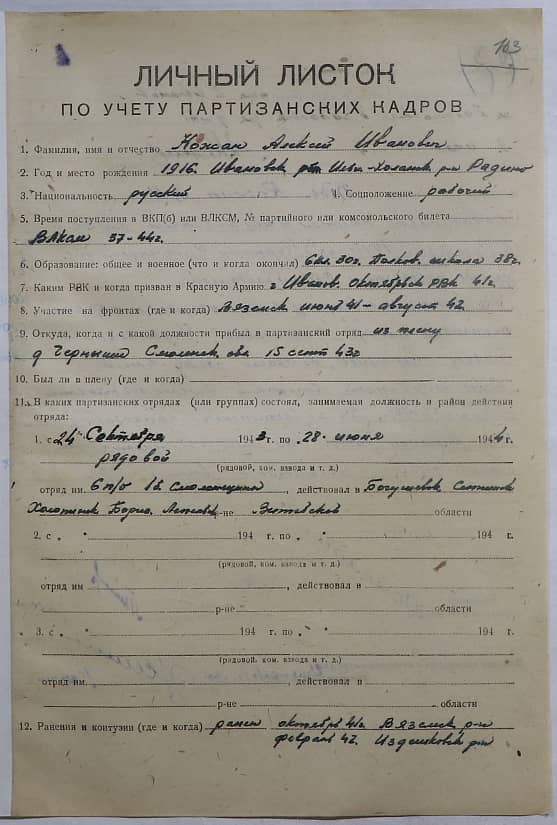 163
ЛИЧНЫЙ ЛИСТОК
ПО УЧЕТУ ПАРТИЗАНСКИХ КАДРОВ
1. Фамилия, имя и отчество Кожан Алексей Иванович
2. Год и место рождения 1916. Ивановск р-н
3. Национальность русский 4. Соцположение рабочий
5. Время поступления в ВКП(б) или ВЛКСМ, № партийного или комсомольского билета
37-44г.
6. Образование: общее и военное (что и когда окончил) 6 кл. 30г. Полков. школа 38г.
7. Каким РВК и когда призван в Красную Армию г Иванов. Октябрьск РВК 41г.
8. Участие на фронтах (где и когда) Вяземск июнь 41 – август 42.
9. Откуда, когда и с какой должности прибыл в партизанский отряд из плену
д Смоленск. обл. 15 сент 43г
10. Был ли в плену (где и когда)
11. В каких партизанских отрядах (или группах) состоял, занимаемая должность и район действия
отряда:
1. с 24 Сентября 1943 г. по 28 июня 1944 г.
рядовой
(рядовой, ком. взвода и т. д.)
отряд им. 6 п/б , действовал в Богушевск Сеннинск
Холопинск Борис. р-не Витебской области
2. с " " 194 г. по " 194 г.
(рядовой, ком. взвода и т. д.)
отряд им , действовал в
р-не области
3. с " " 194 г. по " 194 г.
(рядовой, ком. взвода и т. д.)
отряд им. , действовал в
р-не области
12. Ранения и контузии (где и когда) ранен октябрь 41г. Вяземск р-н
февраль 42. Издешковск р-н